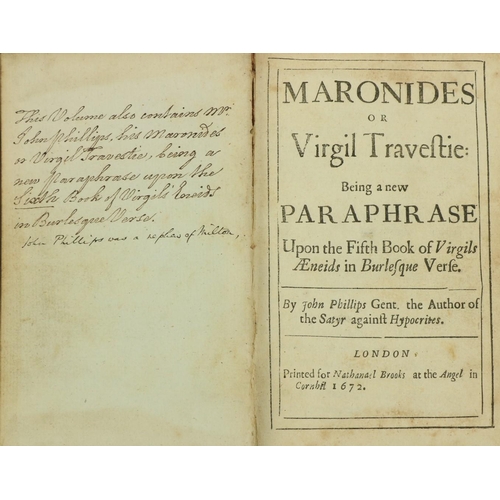 This Volume also contains Mr.
John Phillips, his Maronides
or Virgil Travestie, being a
new Paraphrase upon the
Sixth Book of Virgils Eneids
in Burlesque Verse.
John Phillips was a nephew of Milton,
MARONIDES
OR
Virgil Traveſtie:
Being a new
PARAPHRASE
Upon the Fifth Book of Virgils
Æneids in Burleſque Verſe.
By John Phillips Gent. the Author of
the Satyr againſt Hypocrites.
LONDON:
Printed for Nathanael Brooks at the Angel in
Cornhil 1672.